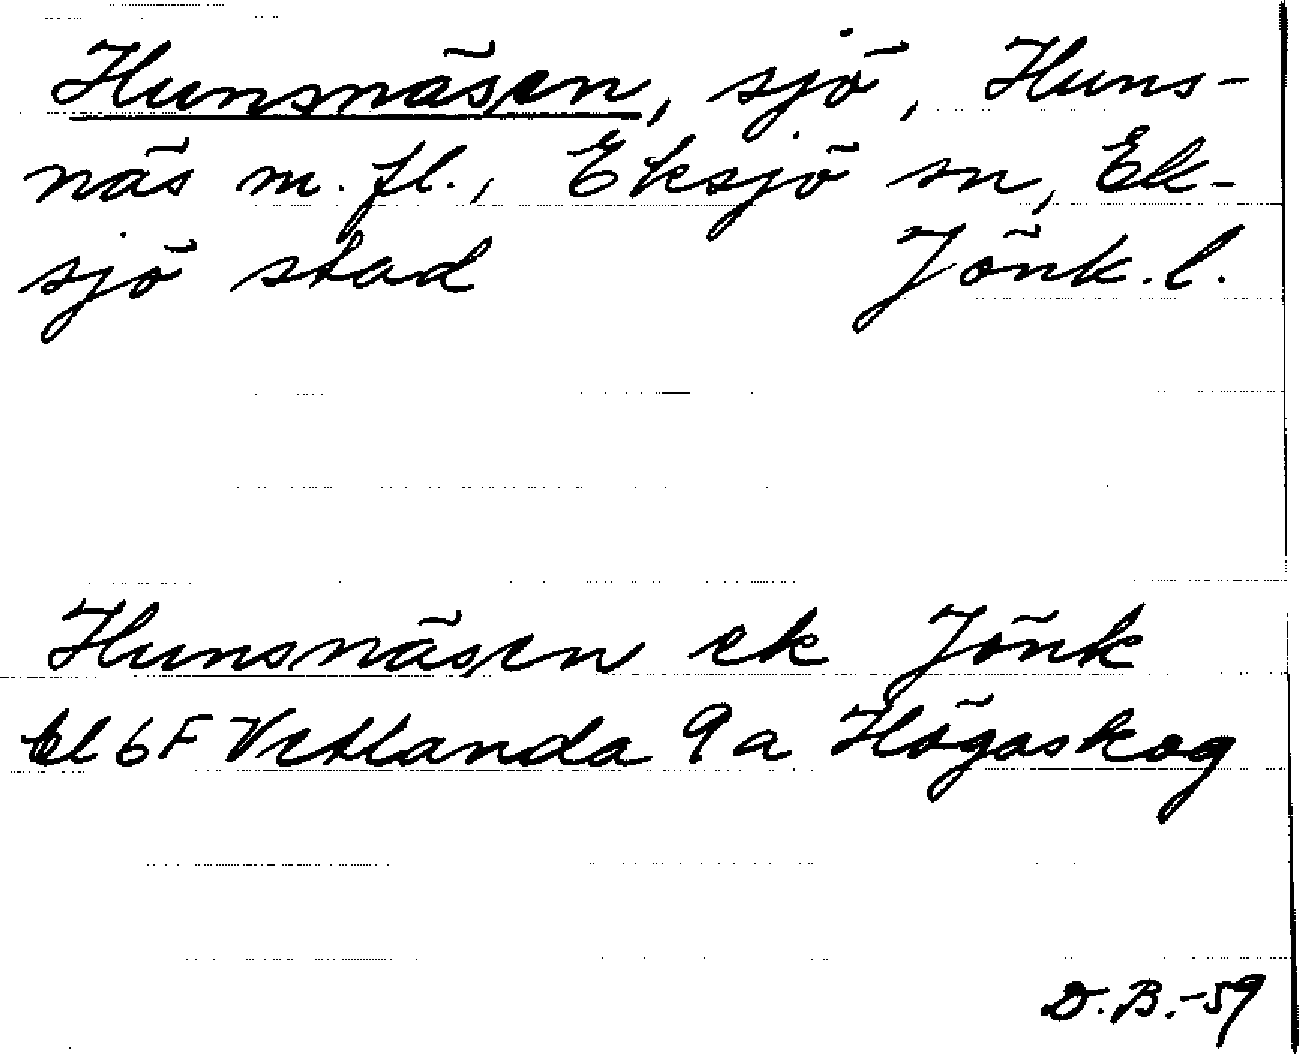 Hunsnäsen, sjö, Huns-
näs m.fl., Eksjö sn, Ek-
sjö stad Jönk.l.
Hunsnäsen ek Jönk
bl 6F Vetlanda 9a Högaskog
D.B.-59